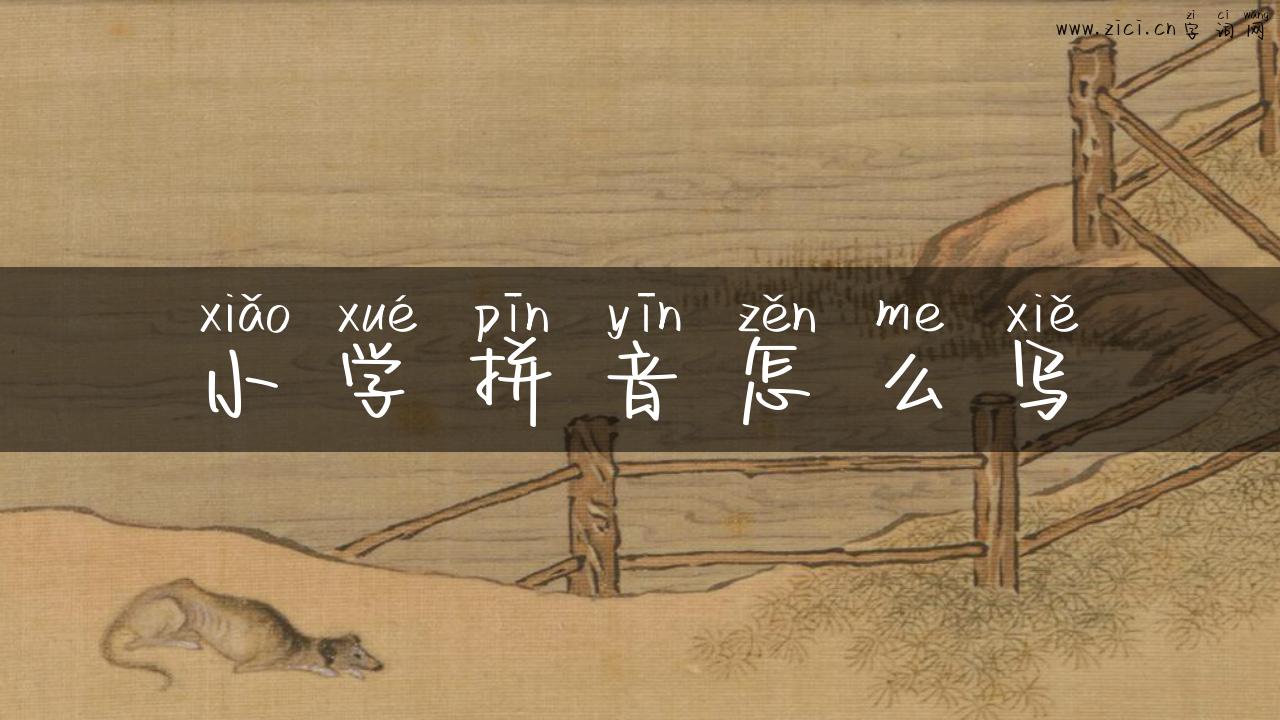 zi ci wang
www.zici.cn 字词网
xiǎo xué pīn yīn zěn me xiě
小学拼音怎么写